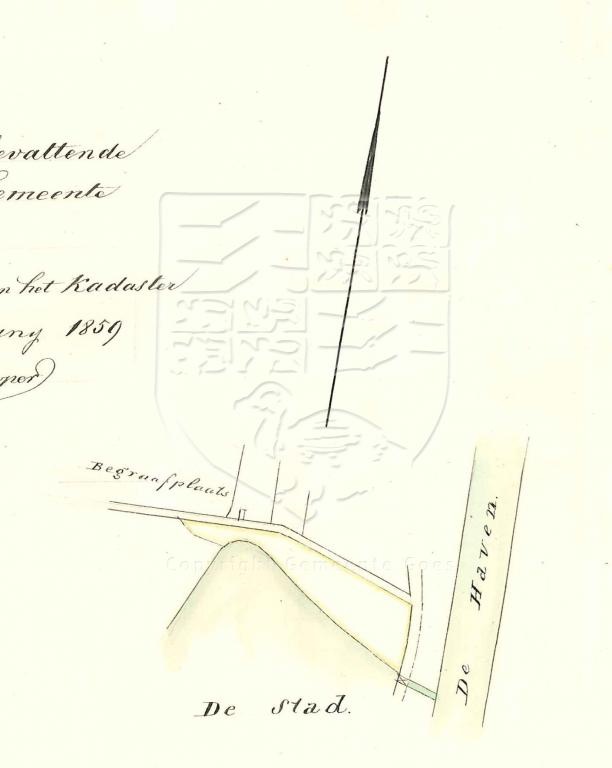 evattende
emeente
n het Kadaster
uny 1859
Begraafplaats
Copyright Gemeente Goes
De Haven.
De Stad.